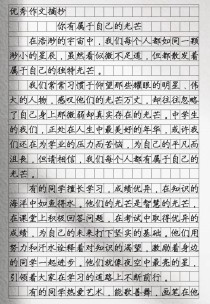 优秀作文摘抄
你有属于自己的光芒
在浩渺的宇宙中，我们每个人都如同一颗
渺小的星辰，虽然看似微不足道，但都散发着
属于自己的独特光芒。
我们常常习惯仰望那些耀眼的明星，伟
大的人物，感叹他们的光芒万丈，却往往忽略
了自己身上那微弱却真实存在的光芒，中学生
的我们，正处在人生中最美好的年华，或许我
们还在为学业的压力而苦恼，为自己的平凡而
沮丧，但请相信，我们每个人都有属于自己的
光芒。
有的同学擅长学习，成绩优异，在知识的
海洋中如鱼得水，他们的光芒是智慧的光芒，
在课堂上积极回答问题，在考试中取得优异的
成绩，为自己的未来打下坚实的基础，他们用
努力和汗水诠释着对知识的渴望，激励着身边
的同学一起进步，他们就像夜空中最亮的星，
引领着大家在学习的道路上不断前行。
有的同学热爱艺术，能歌善舞，画笔在他